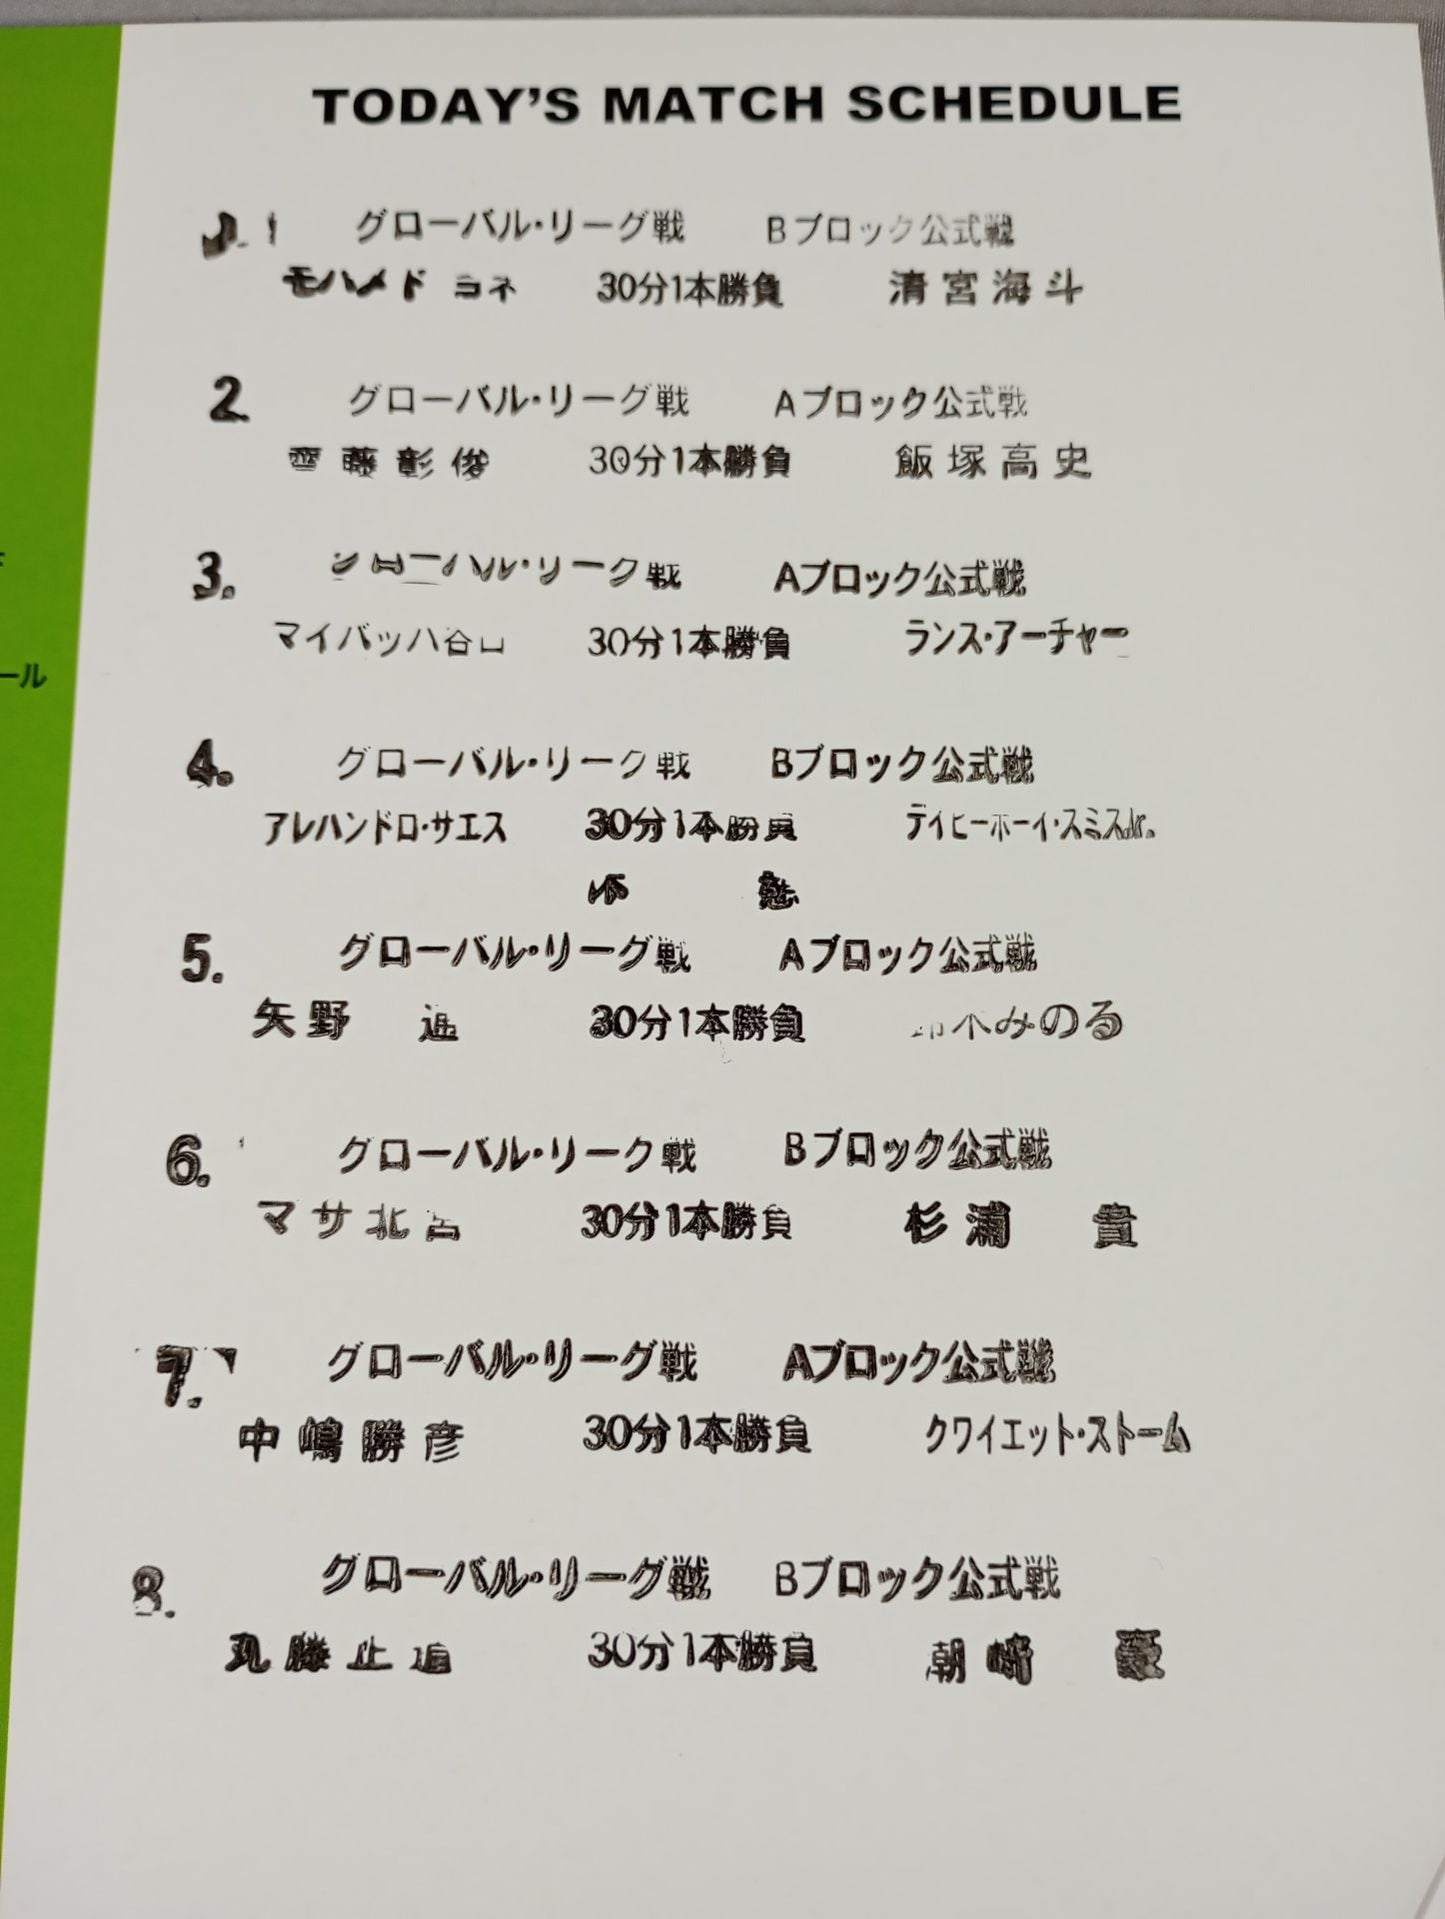 TODAY'S MATCH SCHEDULE
グローバル・リーグ戦 Bブロック公式戦
モハメド ヨネ 30分1本勝負 清宮海斗
2. グローバル・リーグ戦 Aブロック公式戦
齋藤彰俊 30分1本勝負 飯塚高史
3. グローバル・リーグ戦 Aブロック公式戦
マイバッハ谷口 30分1本勝負 ランス・アーチャー
4. グローバル・リーグ戦 Bブロック公式戦
アレハンドロ・サエス 30分1本勝負 デイビーボーイ・スミスJr.
休 憩
5. グローバル・リーグ戦 Aブロック公式戦
矢野 通 30分1本勝負 鈴木みのる
6. グローバル・リーグ戦 Bブロック公式戦
マサ北宮 30分1本勝負 杉浦 貴
7. グローバル・リーグ戦 Aブロック公式戦
中嶋勝彦 30分1本勝負 クワイエット・ストーム
8. グローバル・リーグ戦 Bブロック公式戦
丸藤 30分1本勝負 豪
ール